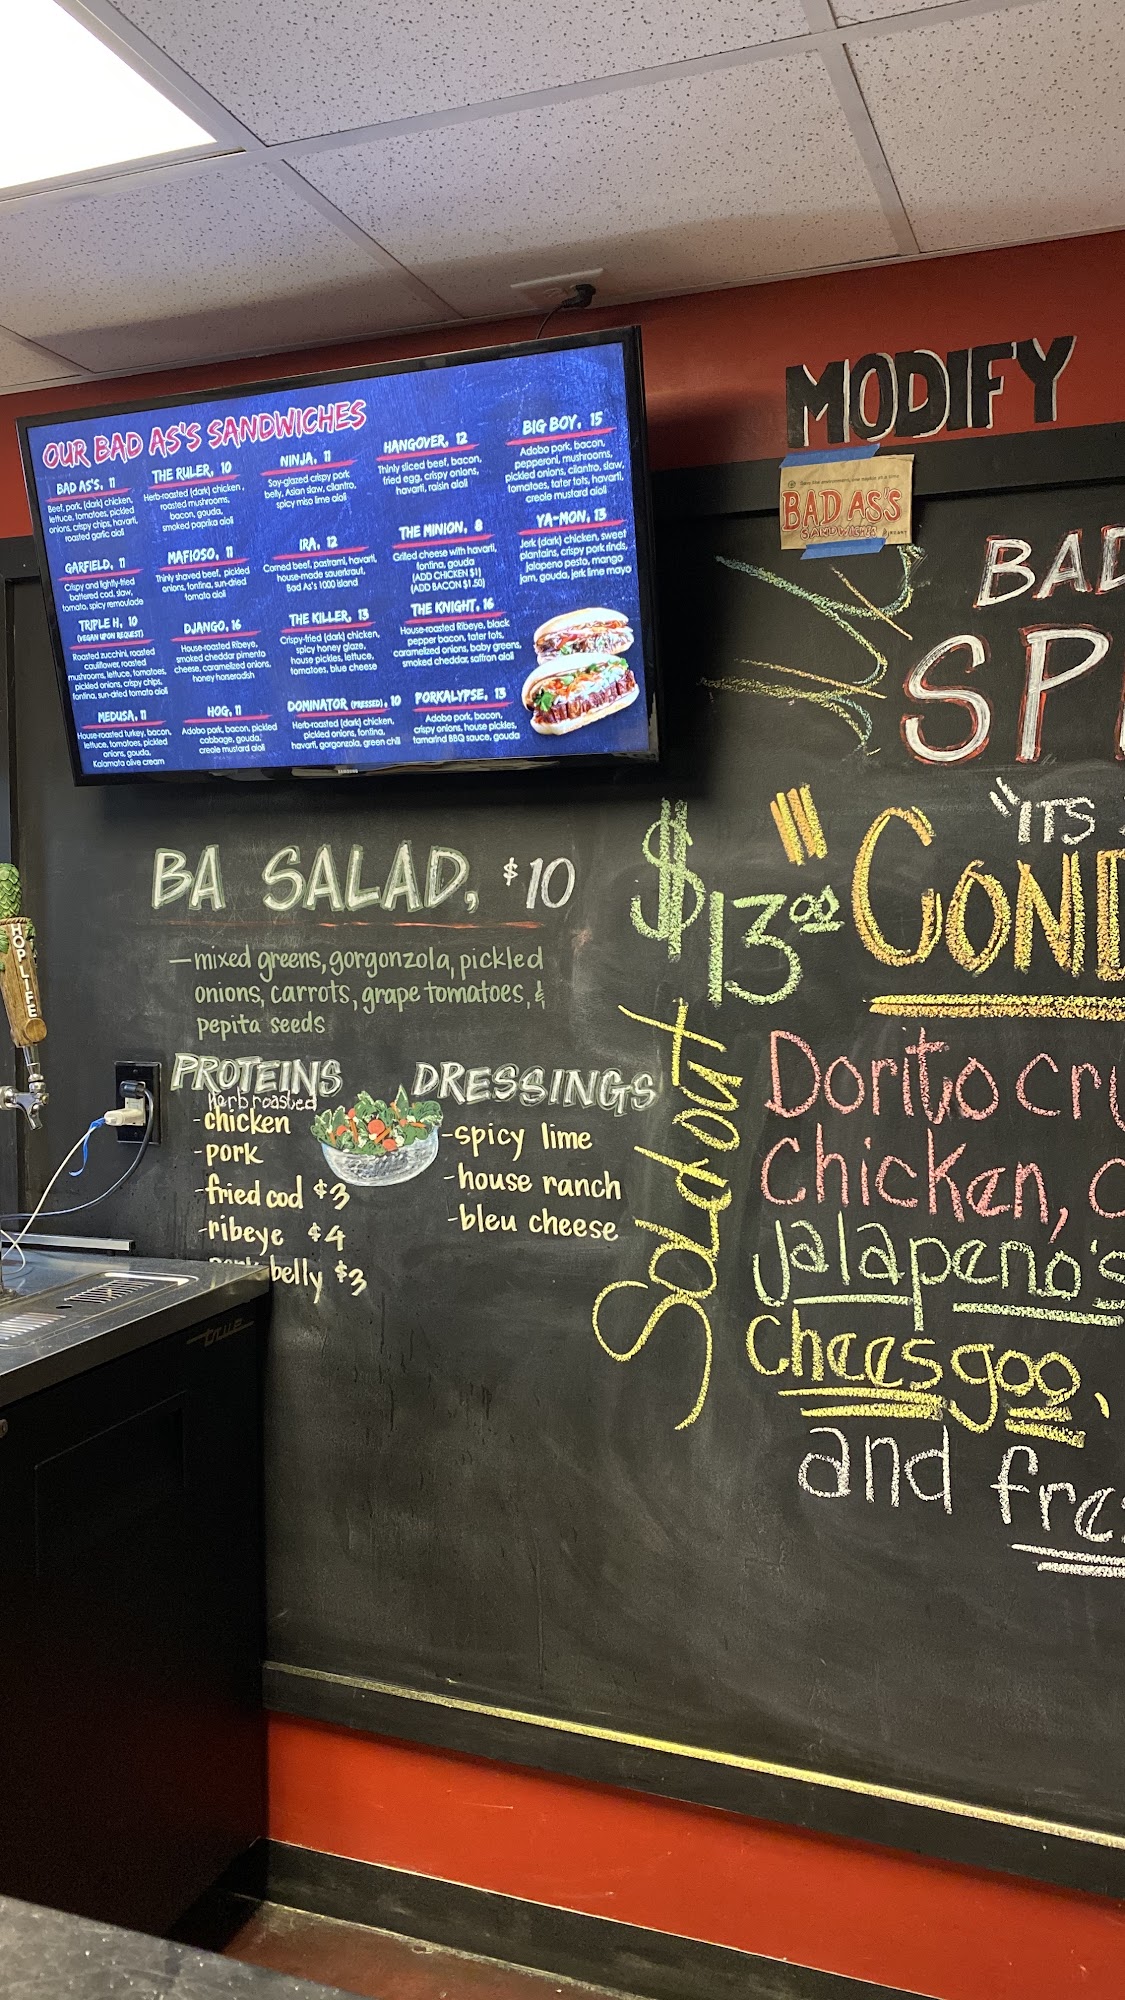 OUR BAD AS'S SANDWICHES
BAD AS'S, 11
Beef, pork, (dark) chicken,
lettuce, tomatoes, pickled
onions, crispy chips, havarti,
roasted garlic aioli
GARFIELD, 11
Crispy and lightly-fried
battered cod, slaw,
tomato, spicy remoulade
TRIPLE H, 10
(VEGAN UPON REQUEST)
Roasted zucchini, roasted
cauliflower, roasted
mushrooms, lettuce, tomatoes,
pickled onions, crispy chips,
fontina, sun-dried tomato aioli
MEDUSA, 11
House-roasted turkey, bacon,
lettuce, tomatoes, pickled
onions, gouda,
Kalamata olive cream
THE RULER, 10
Herb-roasted (dark) chicken,
roasted mushrooms,
bacon, gouda,
smoked paprika aioli
MAFIOSO, 11
Thinly shaved beef, pickled
onions, fontina, sun-dried
tomato aioli
DJANGO, 16
House-roasted Ribeye,
smoked cheddar pimento
cheese, caramelized onions,
honey horseradish
HOG, 11
Adobo pork, bacon, pickled
cabbage, gouda,
creole mustard aioli
NINJA, 11
Soy-glazed crispy pork
belly, Asian slaw, cilantro,
spicy miso lime aioli
IRA, 12
Corned beef, pastrami, havarti,
house-made sauerkraut,
Bad As's 1000 island
THE KILLER, 13
Crispy-fried (dark) chicken,
spicy honey glaze,
house pickles, lettuce,
tomatoes, blue cheese
DOMINATOR (PRESSED), 10
Herb-roasted (dark) chicken,
pickled onions, fontina,
havarti, gorgonzola, green chili
HANGOVER, 12
Thinly sliced beef, bacon,
fried egg, crispy onions,
havarti, raisin aioli
THE MINION, 8
Grilled cheese with havarti,
fontina, gouda
(ADD CHICKEN $1)
(ADD BACON $1.50)
THE KNIGHT, 16
House-roasted Ribeye, black
pepper bacon, tater tots,
caramelized onions, baby greens,
smoked cheddar, saffron aioli
PORKALYPSE, 13
Adobo pork, bacon,
crispy onions, house pickles,
tamarind BBQ sauce, gouda
BIG BOY, 15
Adobo pork, bacon,
pepperoni, mushrooms,
pickled onions, cilantro, slaw,
tomatoes, tater tots, havarti,
creole mustard aioli
YA-MON, 13
Jerk (dark) chicken, sweet
plantains, crispy pork rinds,
jalapeno pesto, mango
jam, gouda, jerk lime mayo
SAMSUNG
MODIFY
BAD AS'S
SANDWICH
BAD
SP
"ITS
$13.00 "COND
Sold out
Dorito cru
Chicken, c
Jalapeno's
cheesgoo,
and fres
BA SALAD, $10
— mixed greens, gorgonzola, pickled
onions, carrots, grape tomatoes, &
pepita seeds
PROTEINS
Herb roasted
- chicken
- pork
- fried cod $3
- ribeye $4
pork belly $3
DRESSINGS
- spicy lime
- house ranch
- bleu cheese
HOP LIFE
true